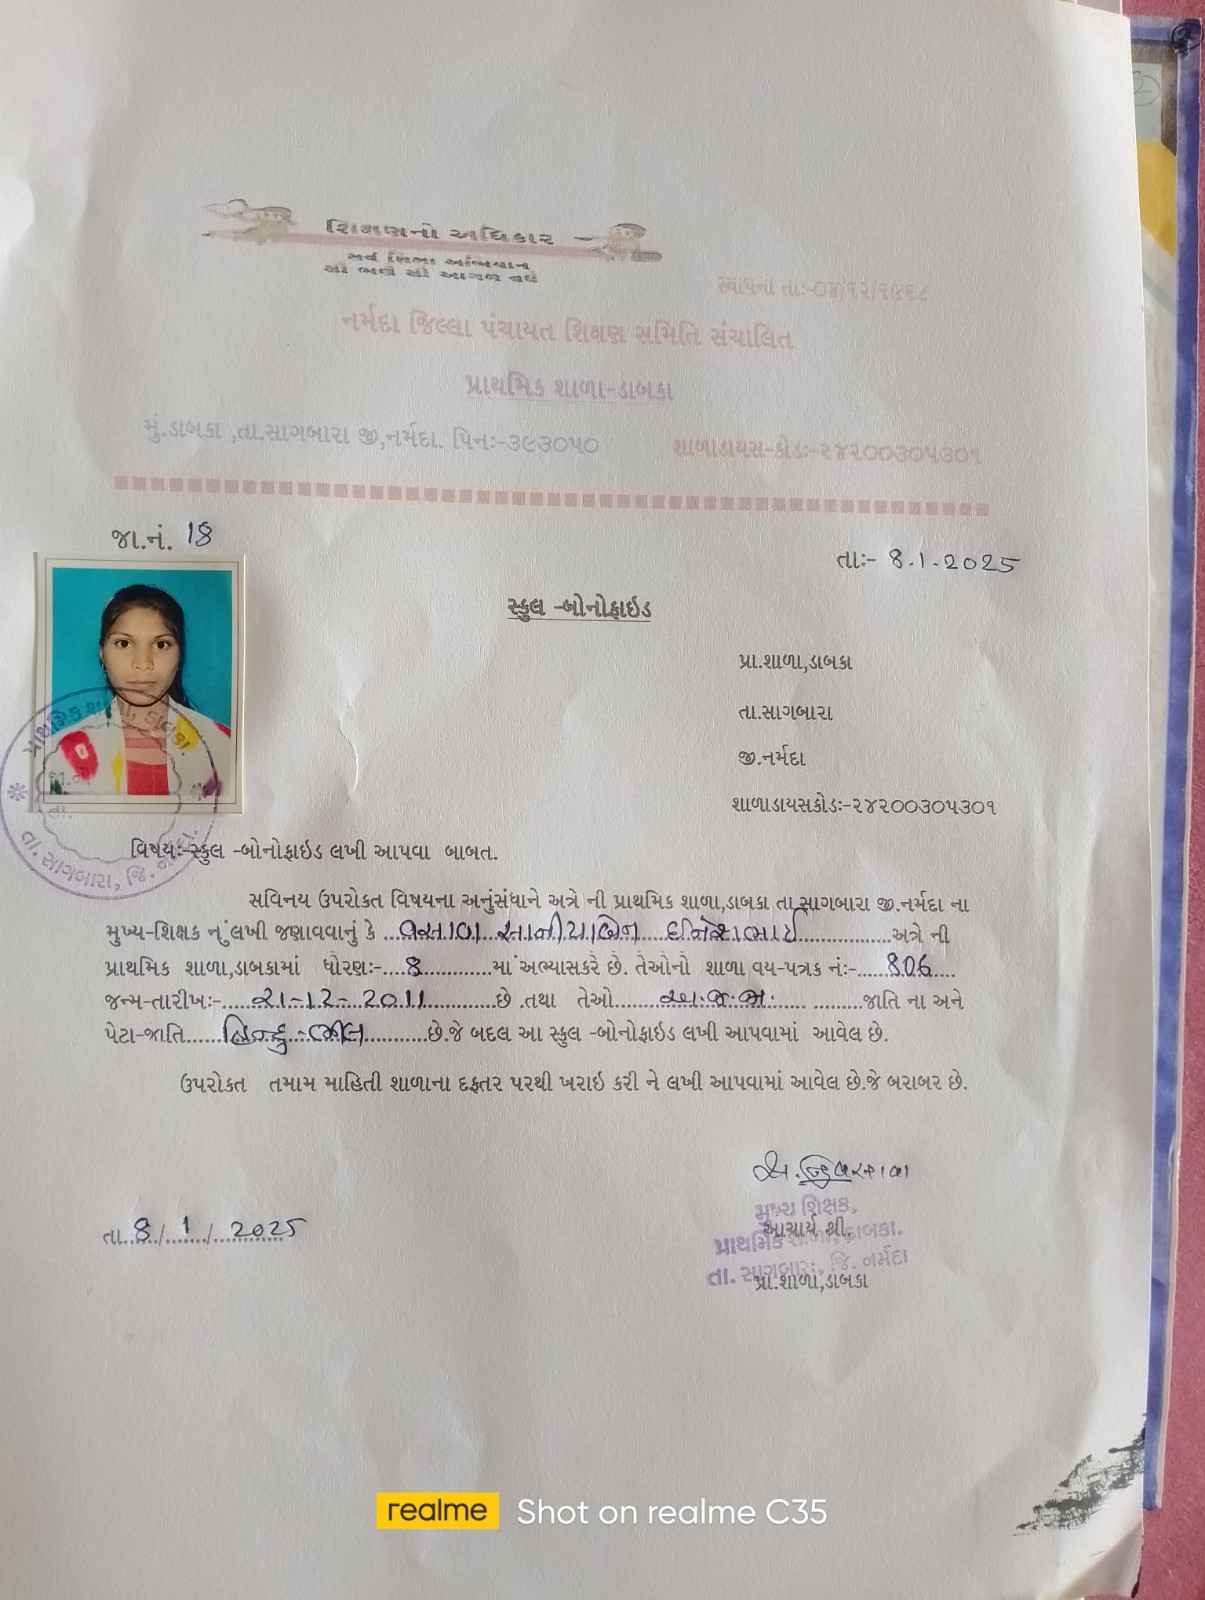 શિક્ષણનો અધિકાર
સર્વ શિક્ષા અભિયાન
સૌ ભણે સૌ આગળ વધે
સ્થાપના તાઃ-૦૪/૧૨/૧૯૬૮
નર્મદા જિલ્લા પંચાયત શિક્ષણ સમિતિ સંચાલિત
પ્રાથમિક શાળા-ડાબકા
મું.ડાબકા ,તા.સાગબારા જી,નર્મદા. પિનઃ-૩૯૩૦૫૦ શાળાડાયસ-કોડઃ-૨૪૨૦૦૩૦૫૩૦૧
જા.નં. 18
તાઃ- 8.1.2025
સ્કુલ -બોનોફાઇડ
પ્રા.શાળા,ડાબકા
તા.સાગબારા
જી.નર્મદા
શાળાડાયસકોડઃ-૨૪૨૦૦૩૦૫૩૦૧
વિષયઃ-સ્કુલ -બોનોફાઇડ લખી આપવા બાબત.
સવિનય ઉપરોકત વિષયના અનુંસંધાને અત્રે ની પ્રાથમિક શાળા,ડાબકા તા.સાગબારા જી.નર્મદા ના
મુખ્ય-શિક્ષક નું લખી જણાવવાનું કે ...વસાવા...સાનીયાબેન...દિનેશભાઈ...............અત્રે ની
પ્રાથમિક શાળા,ડાબકામાં ધોરણઃ-....8............માં અભ્યાસકરે છે. તેઓનો શાળા વય-પત્રક નંઃ-......806....
જન્મ-તારીખઃ-.....21-12-2011............છે .તથા તેઓ.......અ.જ.જા. ..... .........જાતિ ના અને
પેટા-જાતિ......હિન્દુ-ભીલ............છે.જે બદલ આ સ્કુલ -બોનોફાઇડ લખી આપવામાં આવેલ છે.
ઉપરોકત તમામ માહિતી શાળાના દફતર પરથી ખરાઇ કરી ને લખી આપવામાં આવેલ છે.જે બરાબર છે.
તા..8../..1../..2025
મુખ્ય શિક્ષક,
આચાર્ય શ્રી,
પ્રાથમિક શાળા, ડાબકા.
તા. સાગબારા, જિ. નર્મદા
પ્રા.શાળા,ડાબકા
તા. સાગબારા, જિ.
realme Shot on realme C35